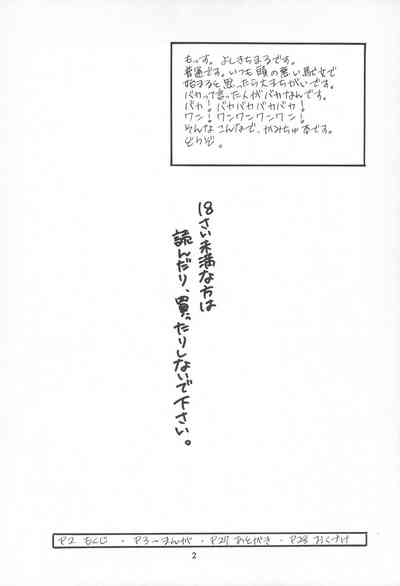 もっす。よしきちまるです。
普通です。いつも頭の悪い駄文で
始まると思ったら大まちがいです。
バカって言った人がバカなんです。
バカ!バカバカバカバカ!
ワン!ワンワンワンワン!
そんなこんなで、かみちゅ本です。
どうぞ。
18さい未満な方は
読んだり、買ったりしないで下さい。
P2 もくじ ・ P3〜まんが ・ P27 あとがき ・ P28 おくづけ
2